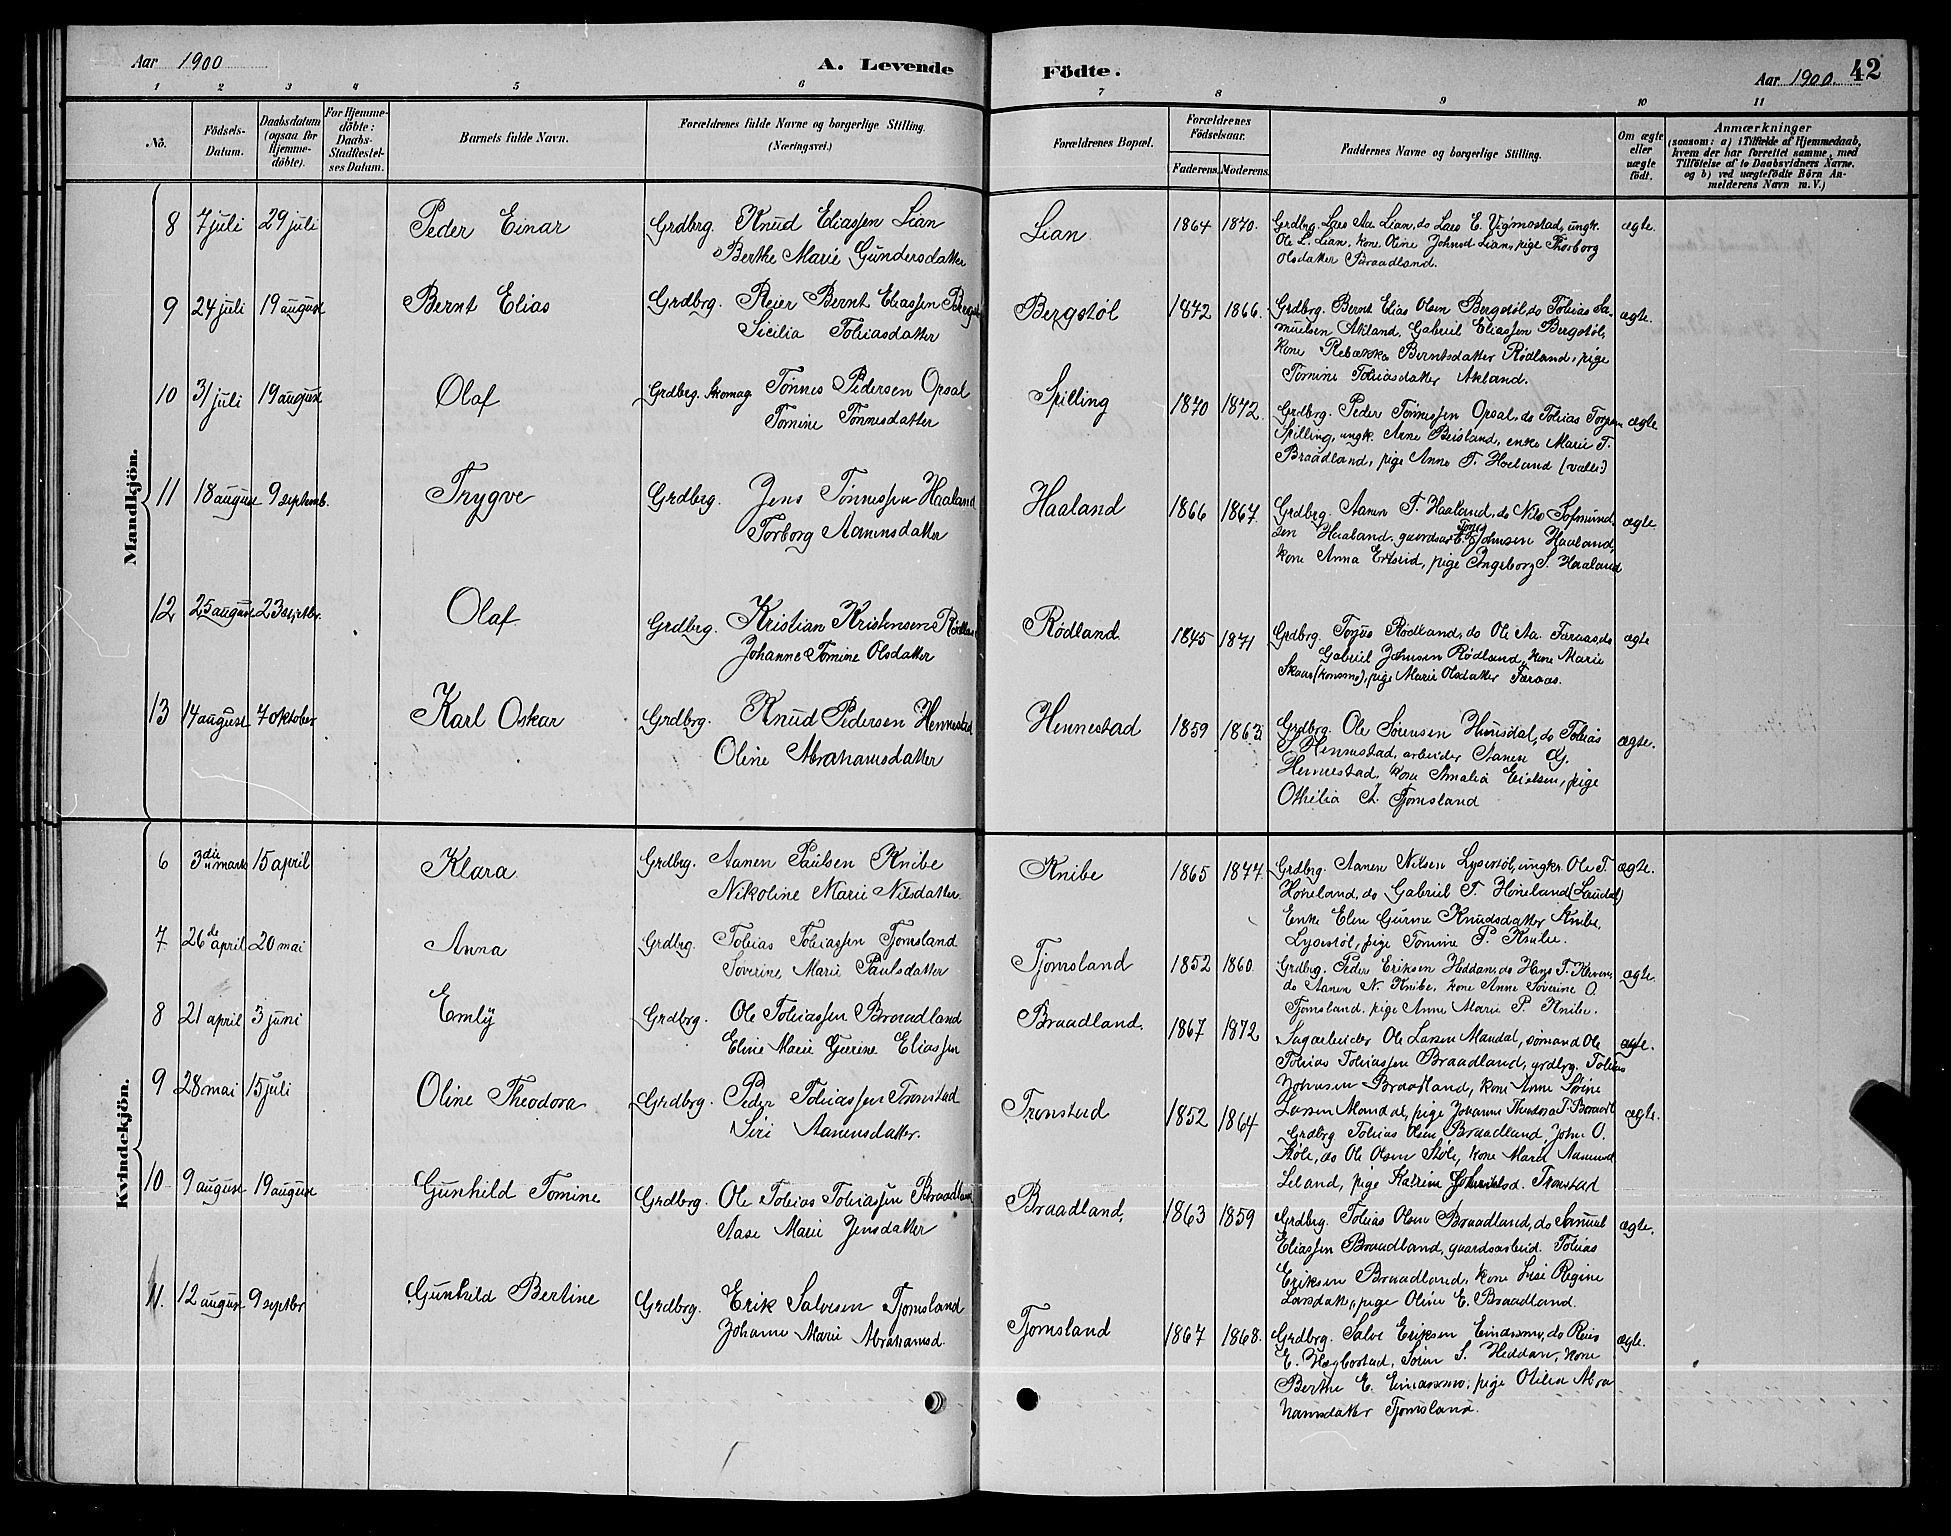 Aar 1900
A. Levende
Födte.
Aar 1900.
42
1 2 3 4 5 6 7 8 9 10 11
No.
Födsels-
Datum.
Daabsdatum
(ogsaa for
Hjemme-
döbte).
For Hjemme-
döbte:
Daabs-
Stadfestel-
ses Datum.
Barnets fulde Navn.
Forældrenes fulde Navne og borgerlige Stilling.
(Næringsvei.)
Forældrenes Bopæl.
Forældrenes
Födselsaar.
Faderens. Moderens.
Faddernes Navne og borgerlige Stilling.
Om ægte
eller
uægte
födt.
Anmærkninger
(saasom: a) i Tilfælde af Hjemmedaab,
hvem der har forrettet samme, med
Tilföielse af to Daabsvidners Navne.
og b) ved uægtefödte Börn An-
melderens Navn m. V.)
Mandkjön.
8 7 juli 29 juli Peder Einar Grdbrg. Knud Eliassen Lian
Berthe Marie Gundersdatter
Lian 1864 1870. Grdbrg. Lars Aa. Lian, do Lars E. Vigmostad, ungk.
Ole L. Lian, kone Oline Johnsd Lian, pige Thorborg
Olsdatter Braadland.
ægte.
9 24 juli 19 august Bernt Elias Grdbrg. Reier Bernt Eliassen
Sicilia Tobiasdatter
Bergstöl 1872 1866. Grdbrg. Bernt Elias Olsen Bergstöl, do Tobias Sa-
muelsen Akland, Gabriel Eliassen Bergstöl,
kone Rebækka Berntsdatter Rödland, pige
Tomine Tobiasdatter Akland.
ægte.
10 31 juli 19 august Olaf Grdbrg. Skomag Tönnes Pedersen Opsal
Tomine Tönnesdatter
Spilling 1870 1872. Grdbrg. Peder Tönnessen Opsal, do Tobias
Spilling, ungk. Arne Beisland, enke Marie T.
Braadland, pige Anne T. Hoeland (valle)
ægte
11 18 august 9 septemb. Trygve Grdbrg. Jens Tönnessen Haaland
Torborg Aanensdatter
Haaland 1866 1867. Grdbrg. Aanen T. Haaland, do Nils
Haaland. Johnsen Haaland,
kone Anna pige Ingeborg S. Haaland
ægte
12 25 august Olaf Grdbrg. Kristian Kristensen
Johanne Tomine Olsdatter
Rödland. 1845 1871 Grdbrg. Rödland, do Ole Aa. Faraas, do
Gabriel Johnsen Rödland, kone Marie
Skaar (konsmo), pige Marie Olsdatter Faraas.
ægte
13 14 august 7 oktober Karl Oskar Grdbrg. Knud Pedersen Hennestad
Oline Abrahamsdatter
Hennestad 1859 1863 Grdbrg. Ole Sörensen Hunsdal, do Tobias
Hennestad, arbeider Aanen
Hennestad, kone Amalia Eielsen, pige
Othilia Tjomsland
ægte.
Kvindekjön.
6 3die marts 15 april Klara Grdbrg. Aanen Paulsen Knibe
Nikoline Marie Nilsdatter
Knibe 1865 1877. Grdbrg. Aanen Nilsen Lyserstöl, ungkr. Ole T.
Höneland, do Gabriel T. Höneland (Laudal)
Enke Elen Gurine Knudsdatter Knibe,
Lyserstöl, pige Tomine P. Knibe.
ægte.
7 26de april 20 mai Anna Grdbrg. Tobias Tobiassen Tjomsland
Severine Marie Paulsdatter
Tjomsland 1852 1860. Grdbrg. Peder Eriksen Heddan, do Hans T.
do Aanen N. Knibe, kone Anne Severine O.
Tjomsland, pige Anne Marie P. Knibe.
ægte.
8 21 april 3 juni Emly Grdbrg. Ole Tobiassen Braadland
Eline Marie Gurine Eliassen
Braadland. 1867 1872 Sagarbeider Ole Larsen Mandal, sömand Ole
Tobias Tobiassen Braadland, grdbrg. Tobias
Johnsen Braadland, kone Anne Sörine
Larsen Mandal, pige Johanne Theodora T. Braadl
ægte.
9 28 mai 15 juli Oline Theodora Grdbrg. Peder Tobiassen Tronstad
Siri Aanensdatter.
Tronstad 1852 1864 Grdbrg Tobias Olsen Braadland, John O.
Stöle, do Ole Olsen Stöle, kone Marie Aasmund
Leland, pige Katrine Tronstad
ægte.
10 9 august 19 august Gunhild Tomine Grdbrg. Ole Tobias Tobiassen Braadland
Aase Marie Jensdatter
Braadland, 1863 1859 Grdbrg. Tobias Olsen Braadland, do Samuel
Eliassen Braadland, gaardsarbeid. Tobias
Eriksen Braadland, kone Lise Regine
Larsdatt., pige Oline E. Braadland.
ægte.
11. 12 august 9 septbr Gunhild Bertine Grdbrg. Erik Salvesen Tjomsland
Johanne Marie Abrahamsd.
Tjomsland 1867 1868. Grdbrg. Salve Eriksen do
E. Hægbostad, Sören S. Heddan, kone
Berthe E. pige Otilia Abra
hamsdatter Tjomsland.
ægte.